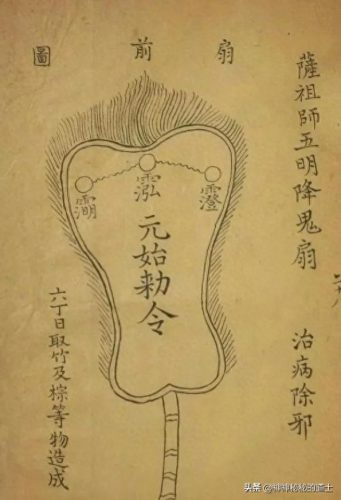 薩祖師五明降鬼扇 治病除邪
扇前圖
元始勅令
六丁日取竹及棕等物造成
头条 @神神秘秘的道士